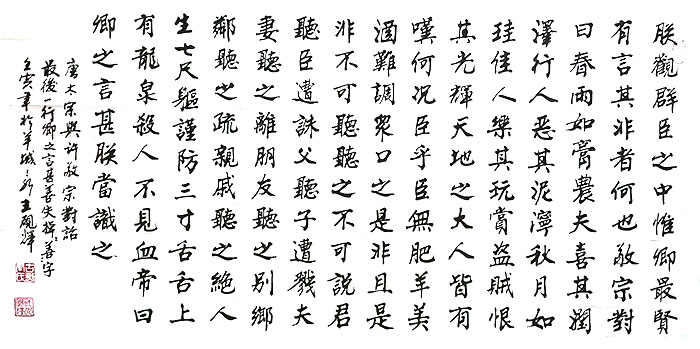 朕觀群臣之中惟卿最賢
有言其非者何也敬宗對
曰春雨如膏農夫喜其潤
澤行人惡其泥濘秋月如
珪佳人樂其玩賞盜賊恨
其光輝天地之大人皆有
嘆何況臣乎臣無肥羊美
酒難調眾口之是非且是
非不可聽聽之不可說君
聽臣遭誅父聽子遭戮夫
妻聽之離朋友聽之別鄉
鄰聽之疏親戚聽之絕人
生七尺軀謹防三寸舌舌上
有龍泉殺人不見血帝曰
卿之言甚朕當識之
唐太宗與許敬宗對話
最後一行卿之言甚善失掉善字
壬寅年於羊城王硯輝